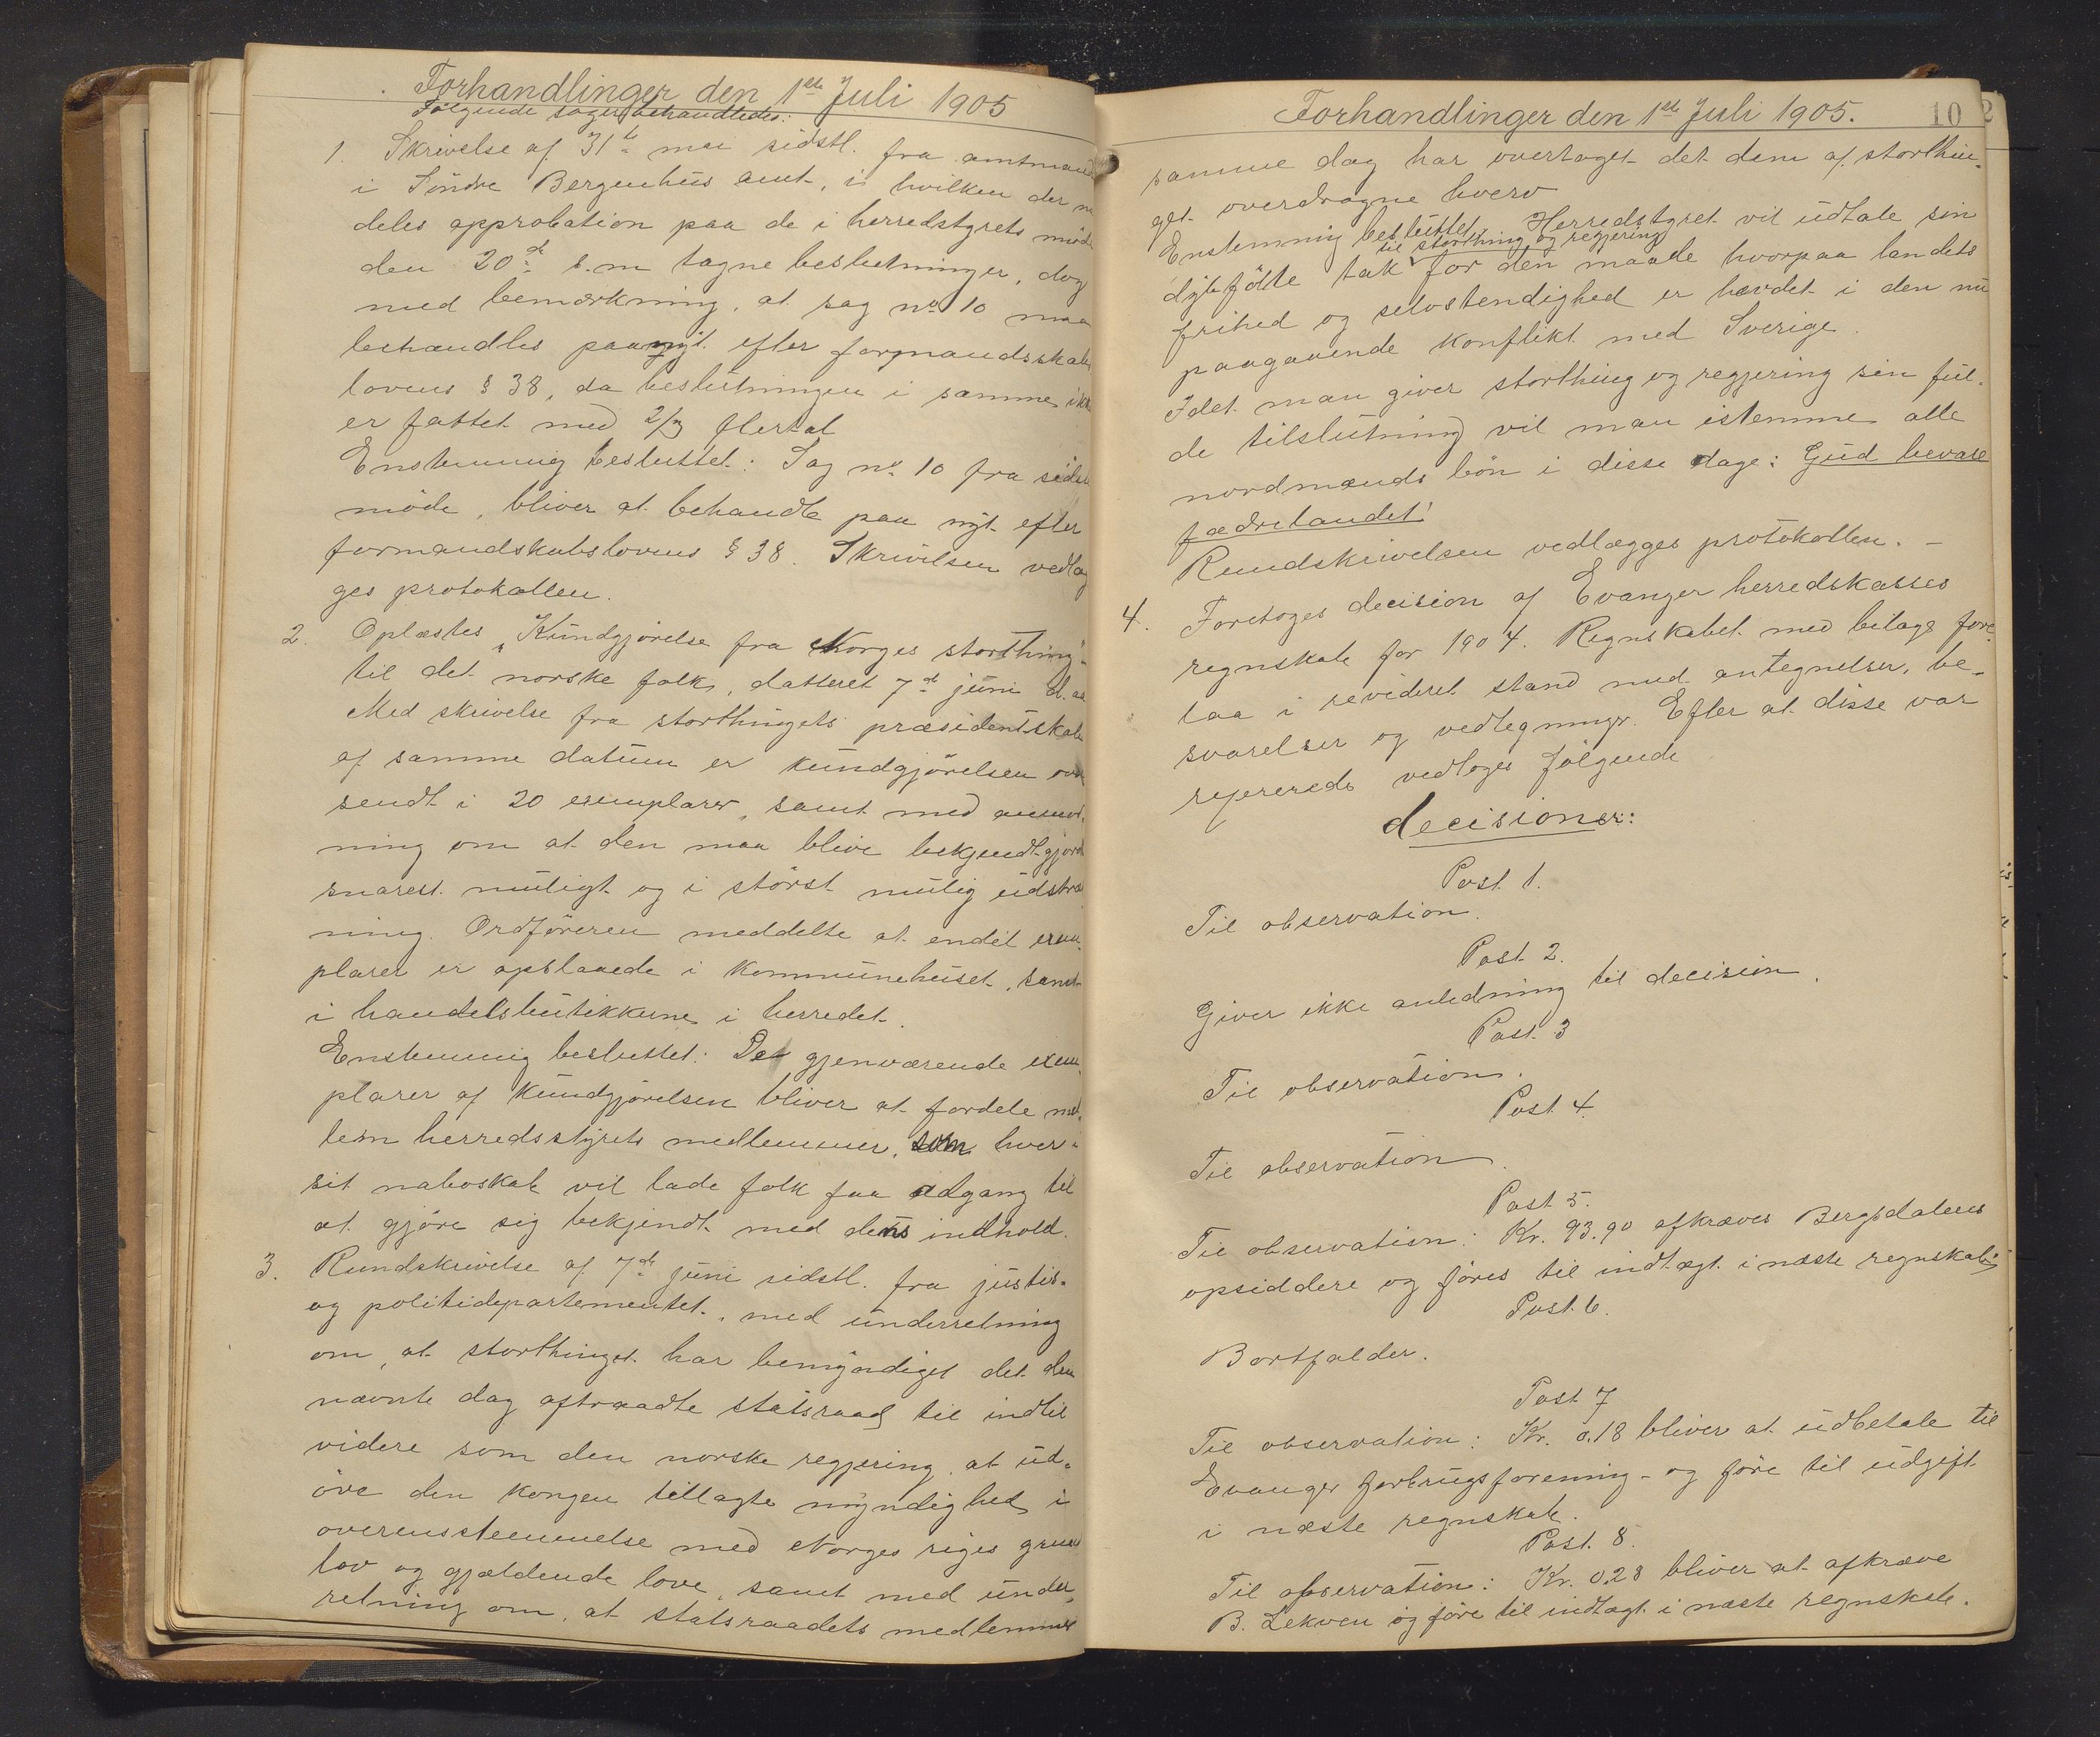 Forhandlinger den 1ste Juli 1905
Følgende sager behandledes:
1. Skrivelse af 31te mai sidstl. fra amtmand
i Søndre Bergenhus amt, i hvilken der
deles approbation paa de i herredstyrets möde
den 20de s.m tagne beslutninger, dog
med bemærkning, at sag no 10 maa
behandles paa nyt efter formandsskabs
lovens § 38, da beslutningen i samme ikke
er fattet med 2/3 flertal
Enstemmig besluttet: Sag no 10 fra sidste
möde, bliver at behandle paa nyt efter
formandskabslovens § 38. Skrivelsen vedlæg
ges protokollen.
2. Oplæstes "Kundgjörelse fra Norges storthing"
til det norske folk, datteret 7de juni d. aa
Med skrivelse fra storthingets præsidentskab
af samme datum er kundgjörelsen over
sendt i 20 exemplarer, samt med anmod
ning om at den maa blive bekjendtgjort
snarest muligt og i störst mulig udstræk
ning. Ordföreren meddelte at endel exem
plarer er opslaaede i kommunehuset, samt
i handelsbutikkene i herredet.
Enstemmig besluttet: De gjenværende exem
plarer af kundgjörelsen bliver at fordele mel
lem herredsstyrets medlemmer, som hver i
sit naboskab vil lade folk faa adgang til
at gjöre sig bekjendt med dens indhold.
3. Rundskrivelse af 7de juni sidstl. fra justis-
og politidepartementet, med underretning
om, at storthinget har bemyndiget det den
nævnte dag aftraadte statsraad til indtil
videre som den norske regjering at ud-
öve den kongen tillagte myndighed i
overensstemmelse med Norges riges grund
lov og gjældende love, samt med under
retning om, at statsraadets medlemmer
Forhandlinger den 1ste Juli 1905. 102
samme dag har overtaget det dem af storthin-
get overdragne hverv
Enstemmig besluttet: Herredstyret vil udtale sin
til storthing og regjering
dybfölte tak for den maade hvorpaa landets
frihed og selvstendighed er hævdet i den nu
paagaaende konflikt med Sverige.
Idet man giver storthing og regjering sin ful-
de tilslutning vil man istemme alle
nordmænds bön i disse dage: Gud bevare
fædrelandet!
Rundskrivelsen vedlægges protokollen. -
4. Foretoges decision af Evanger herredskasses
regnskab for 1904. Regnskabet med bilage fore
laa i revideret stand med antegnelser, be-
svarelser og vedtegninger. Efter at disse var
refererede vedtoges fölgende
decisioner:
Post 1.
Til observation.
Post 2.
Giver ikke anledning til decision.
Post 3
Til observation.
Post 4.
Til observation.
Post 5.
Til observation: Kr. 93.90 afkræves Bergsdalens
opsiddere og föres til indtægt i næste regnskab
Post 6.
Bortfalder.
Post 7
Til observation: Kr. 0.18 bliver at udbetale til
Evanger forbrugsforening - og före til udgift
i næste regnskab.
Post 8.
Til observation: Kr. 0.28 bliver at afkræve
B. Lekven og före til indtægt i næste regnskab.